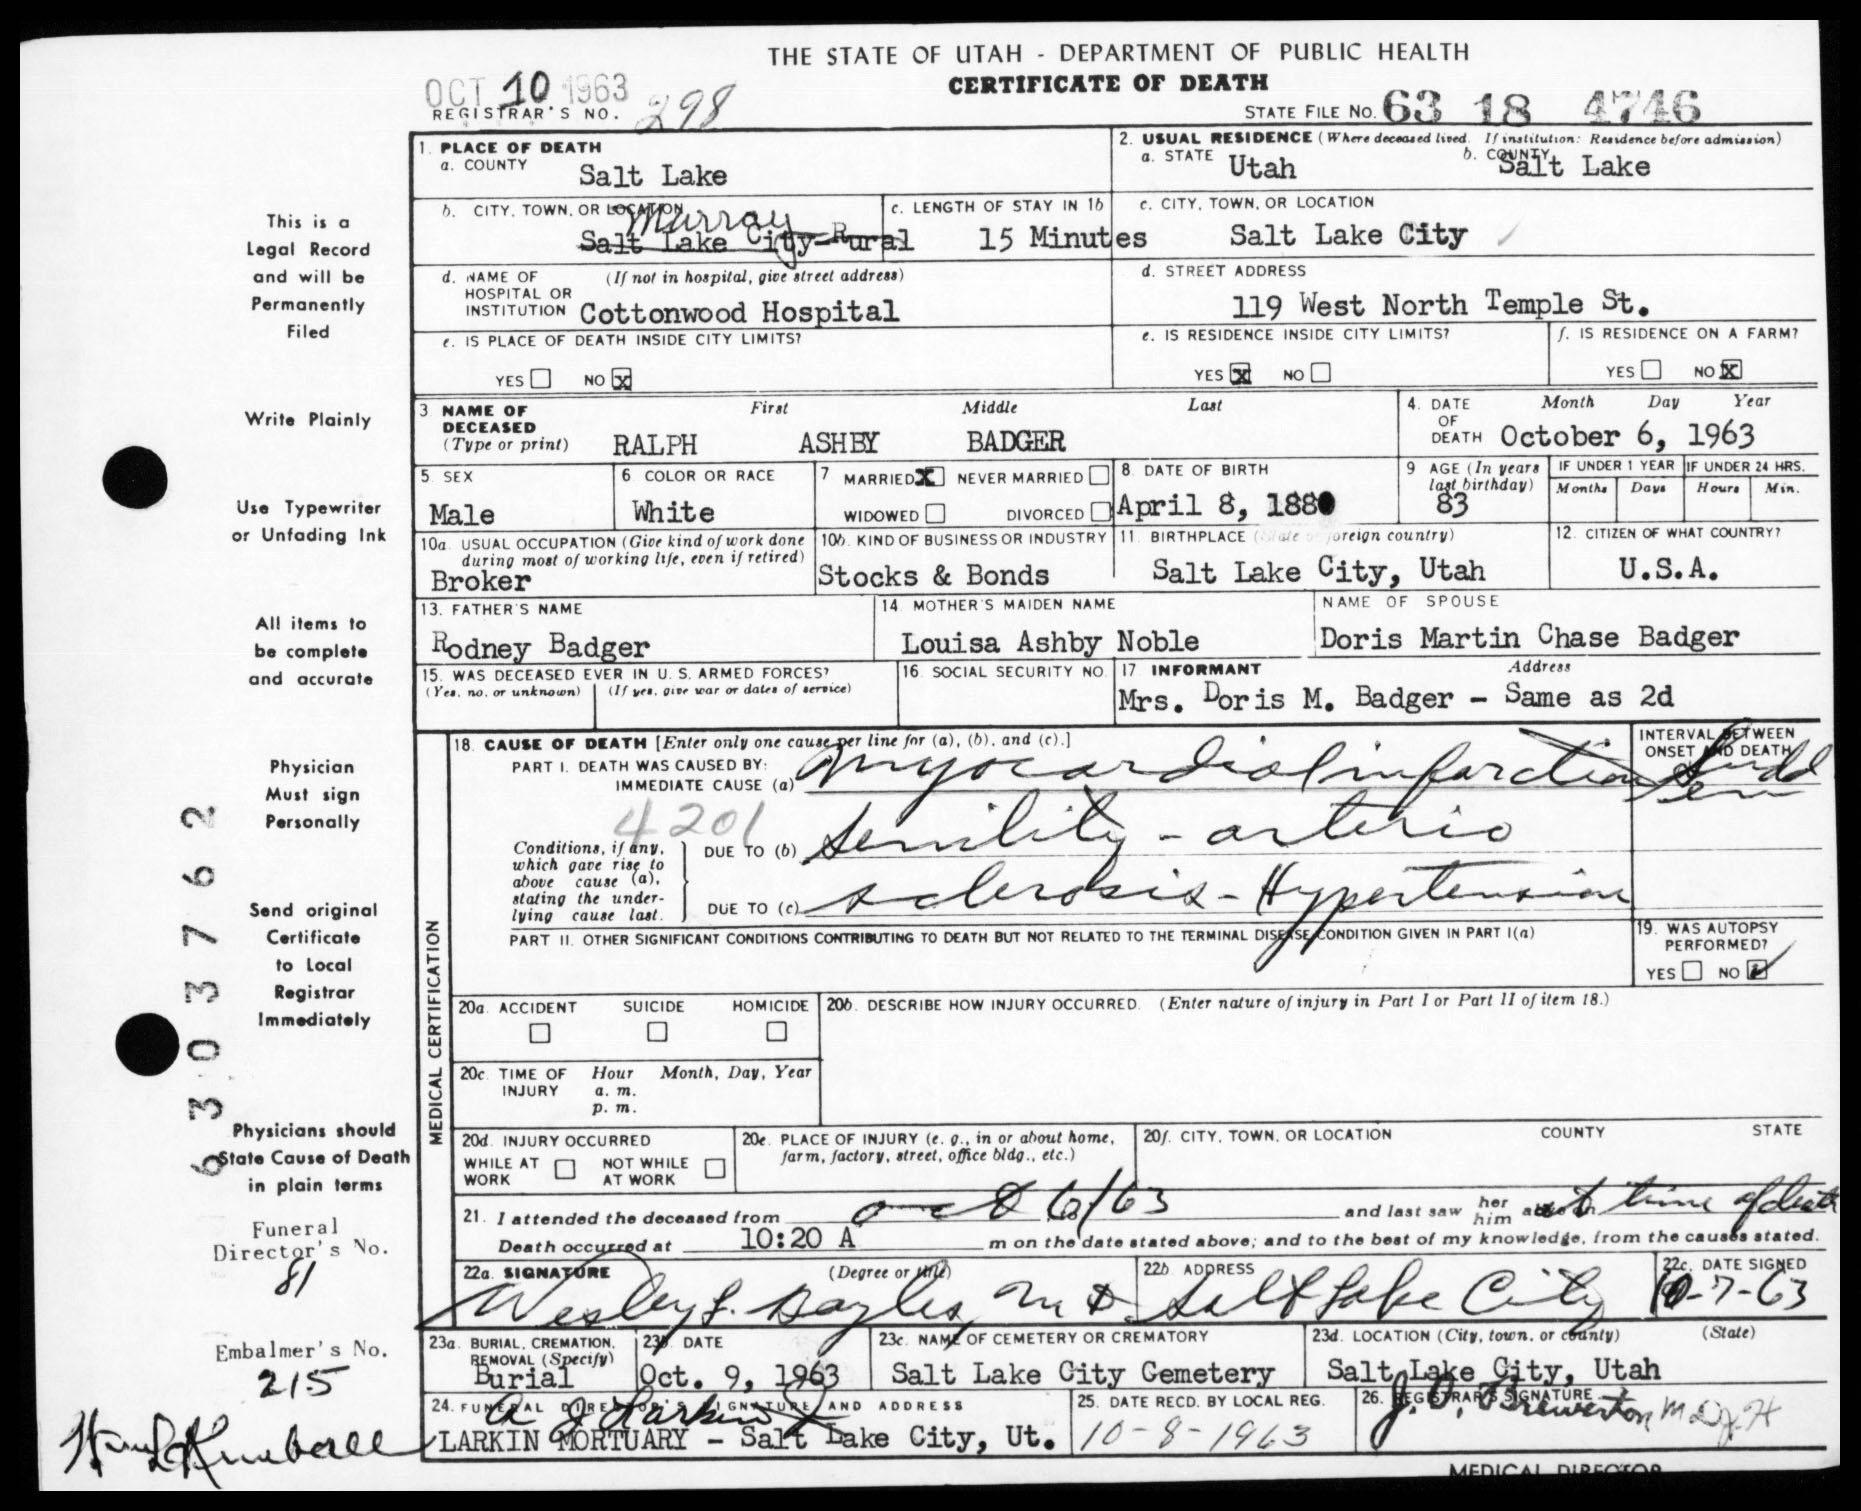 THE STATE OF UTAH - DEPARTMENT OF PUBLIC HEALTH
CERTIFICATE OF DEATH
OCT 10 1963
REGISTRAR'S NO. 298
STATE FILE NO. 63 18 4746
1. PLACE OF DEATH
a. COUNTY
Salt Lake
2. USUAL RESIDENCE (Where deceased lived. If institution: Residence before admission)
a. STATE Utah b. COUNTY Salt Lake
b. CITY, TOWN, OR LOCATION
Murray
Salt Lake City-Rural
c. LENGTH OF STAY IN 1b
15 Minutes
c. CITY, TOWN, OR LOCATION
Salt Lake City
d. NAME OF HOSPITAL OR INSTITUTION (If not in hospital, give street address)
Cottonwood Hospital
d. STREET ADDRESS
119 West North Temple St.
e. IS PLACE OF DEATH INSIDE CITY LIMITS?
YES NO X
e. IS RESIDENCE INSIDE CITY LIMITS?
YES X NO
f. IS RESIDENCE ON A FARM?
YES NO X
3. NAME OF DECEASED (Type or print)
First Middle Last
RALPH ASHBY BADGER
4. DATE OF DEATH Month Day Year
October 6, 1963
5. SEX
Male
6. COLOR OR RACE
White
7. MARRIED X NEVER MARRIED
WIDOWED DIVORCED
8. DATE OF BIRTH
April 8, 1880
9. AGE (In years last birthday)
83
IF UNDER 1 YEAR
Months Days
IF UNDER 24 HRS.
Hours Min.
10a. USUAL OCCUPATION (Give kind of work done during most of working life, even if retired)
Broker
10b. KIND OF BUSINESS OR INDUSTRY
Stocks & Bonds
11. BIRTHPLACE (State or foreign country)
Salt Lake City, Utah
12. CITIZEN OF WHAT COUNTRY?
U.S.A.
13. FATHER'S NAME
Rodney Badger
14. MOTHER'S MAIDEN NAME
Louisa Ashby Noble
NAME OF SPOUSE
Doris Martin Chase Badger
15. WAS DECEASED EVER IN U. S. ARMED FORCES?
(Yes, no, or unknown) (If yes, give war or dates of service)
16. SOCIAL SECURITY NO.
17. INFORMANT Address
Mrs. Doris M. Badger - Same as 2d
MEDICAL CERTIFICATION
18. CAUSE OF DEATH [Enter only one cause per line for (a), (b), and (c).]
PART I. DEATH WAS CAUSED BY:
IMMEDIATE CAUSE (a) Myocardial infarction
INTERVAL BETWEEN ONSET AND DEATH
Sudden
4201
Conditions, if any, which gave rise to above cause (a), stating the underlying cause last.
DUE TO (b) Senility - arterio
DUE TO (c) sclerosis - Hypertension
PART II. OTHER SIGNIFICANT CONDITIONS CONTRIBUTING TO DEATH BUT NOT RELATED TO THE TERMINAL DISEASE CONDITION GIVEN IN PART I(a)
19. WAS AUTOPSY PERFORMED?
YES NO ✓
20a. ACCIDENT SUICIDE HOMICIDE
20b. DESCRIBE HOW INJURY OCCURRED. (Enter nature of injury in Part I or Part II of item 18.)
20c. TIME OF INJURY Hour Month, Day, Year
a. m.
p. m.
20d. INJURY OCCURRED
WHILE AT WORK NOT WHILE AT WORK
20e. PLACE OF INJURY (e. g., in or about home, farm, factory, street, office bldg., etc.)
20f. CITY, TOWN, OR LOCATION COUNTY STATE
21. I attended the deceased from Oct 6/63 and last saw her him at time of death
Death occurred at 10:20 A m on the date stated above; and to the best of my knowledge, from the causes stated.
22a. SIGNATURE (Degree or title)
Wesley L. Bayles, M D.
22b. ADDRESS
Salt Lake City
22c. DATE SIGNED
10-7-63
23a. BURIAL, CREMATION, REMOVAL (Specify)
Burial
23b. DATE
Oct. 9, 1963
23c. NAME OF CEMETERY OR CREMATORY
Salt Lake City Cemetery
23d. LOCATION (City, town, or county) (State)
Salt Lake City, Utah
24. FUNERAL DIRECTOR'S SIGNATURE AND ADDRESS
A J Larkin
LARKIN MORTUARY - Salt Lake City, Ut.
25. DATE RECD. BY LOCAL REG.
10-8-1963
26. REGISTRAR'S SIGNATURE
J. D. Brewerton M D
MEDICAL DIRECTOR
This is a
Legal Record
and will be
Permanently
Filed
Write Plainly
Use Typewriter
or Unfading Ink
All items to
be complete
and accurate
Physician
Must sign
Personally
Send original
Certificate
to Local
Registrar
Immediately
Physicians should
State Cause of Death
in plain terms
Funeral
Director's No.
81
Embalmer's No.
215
Kimball
6303762